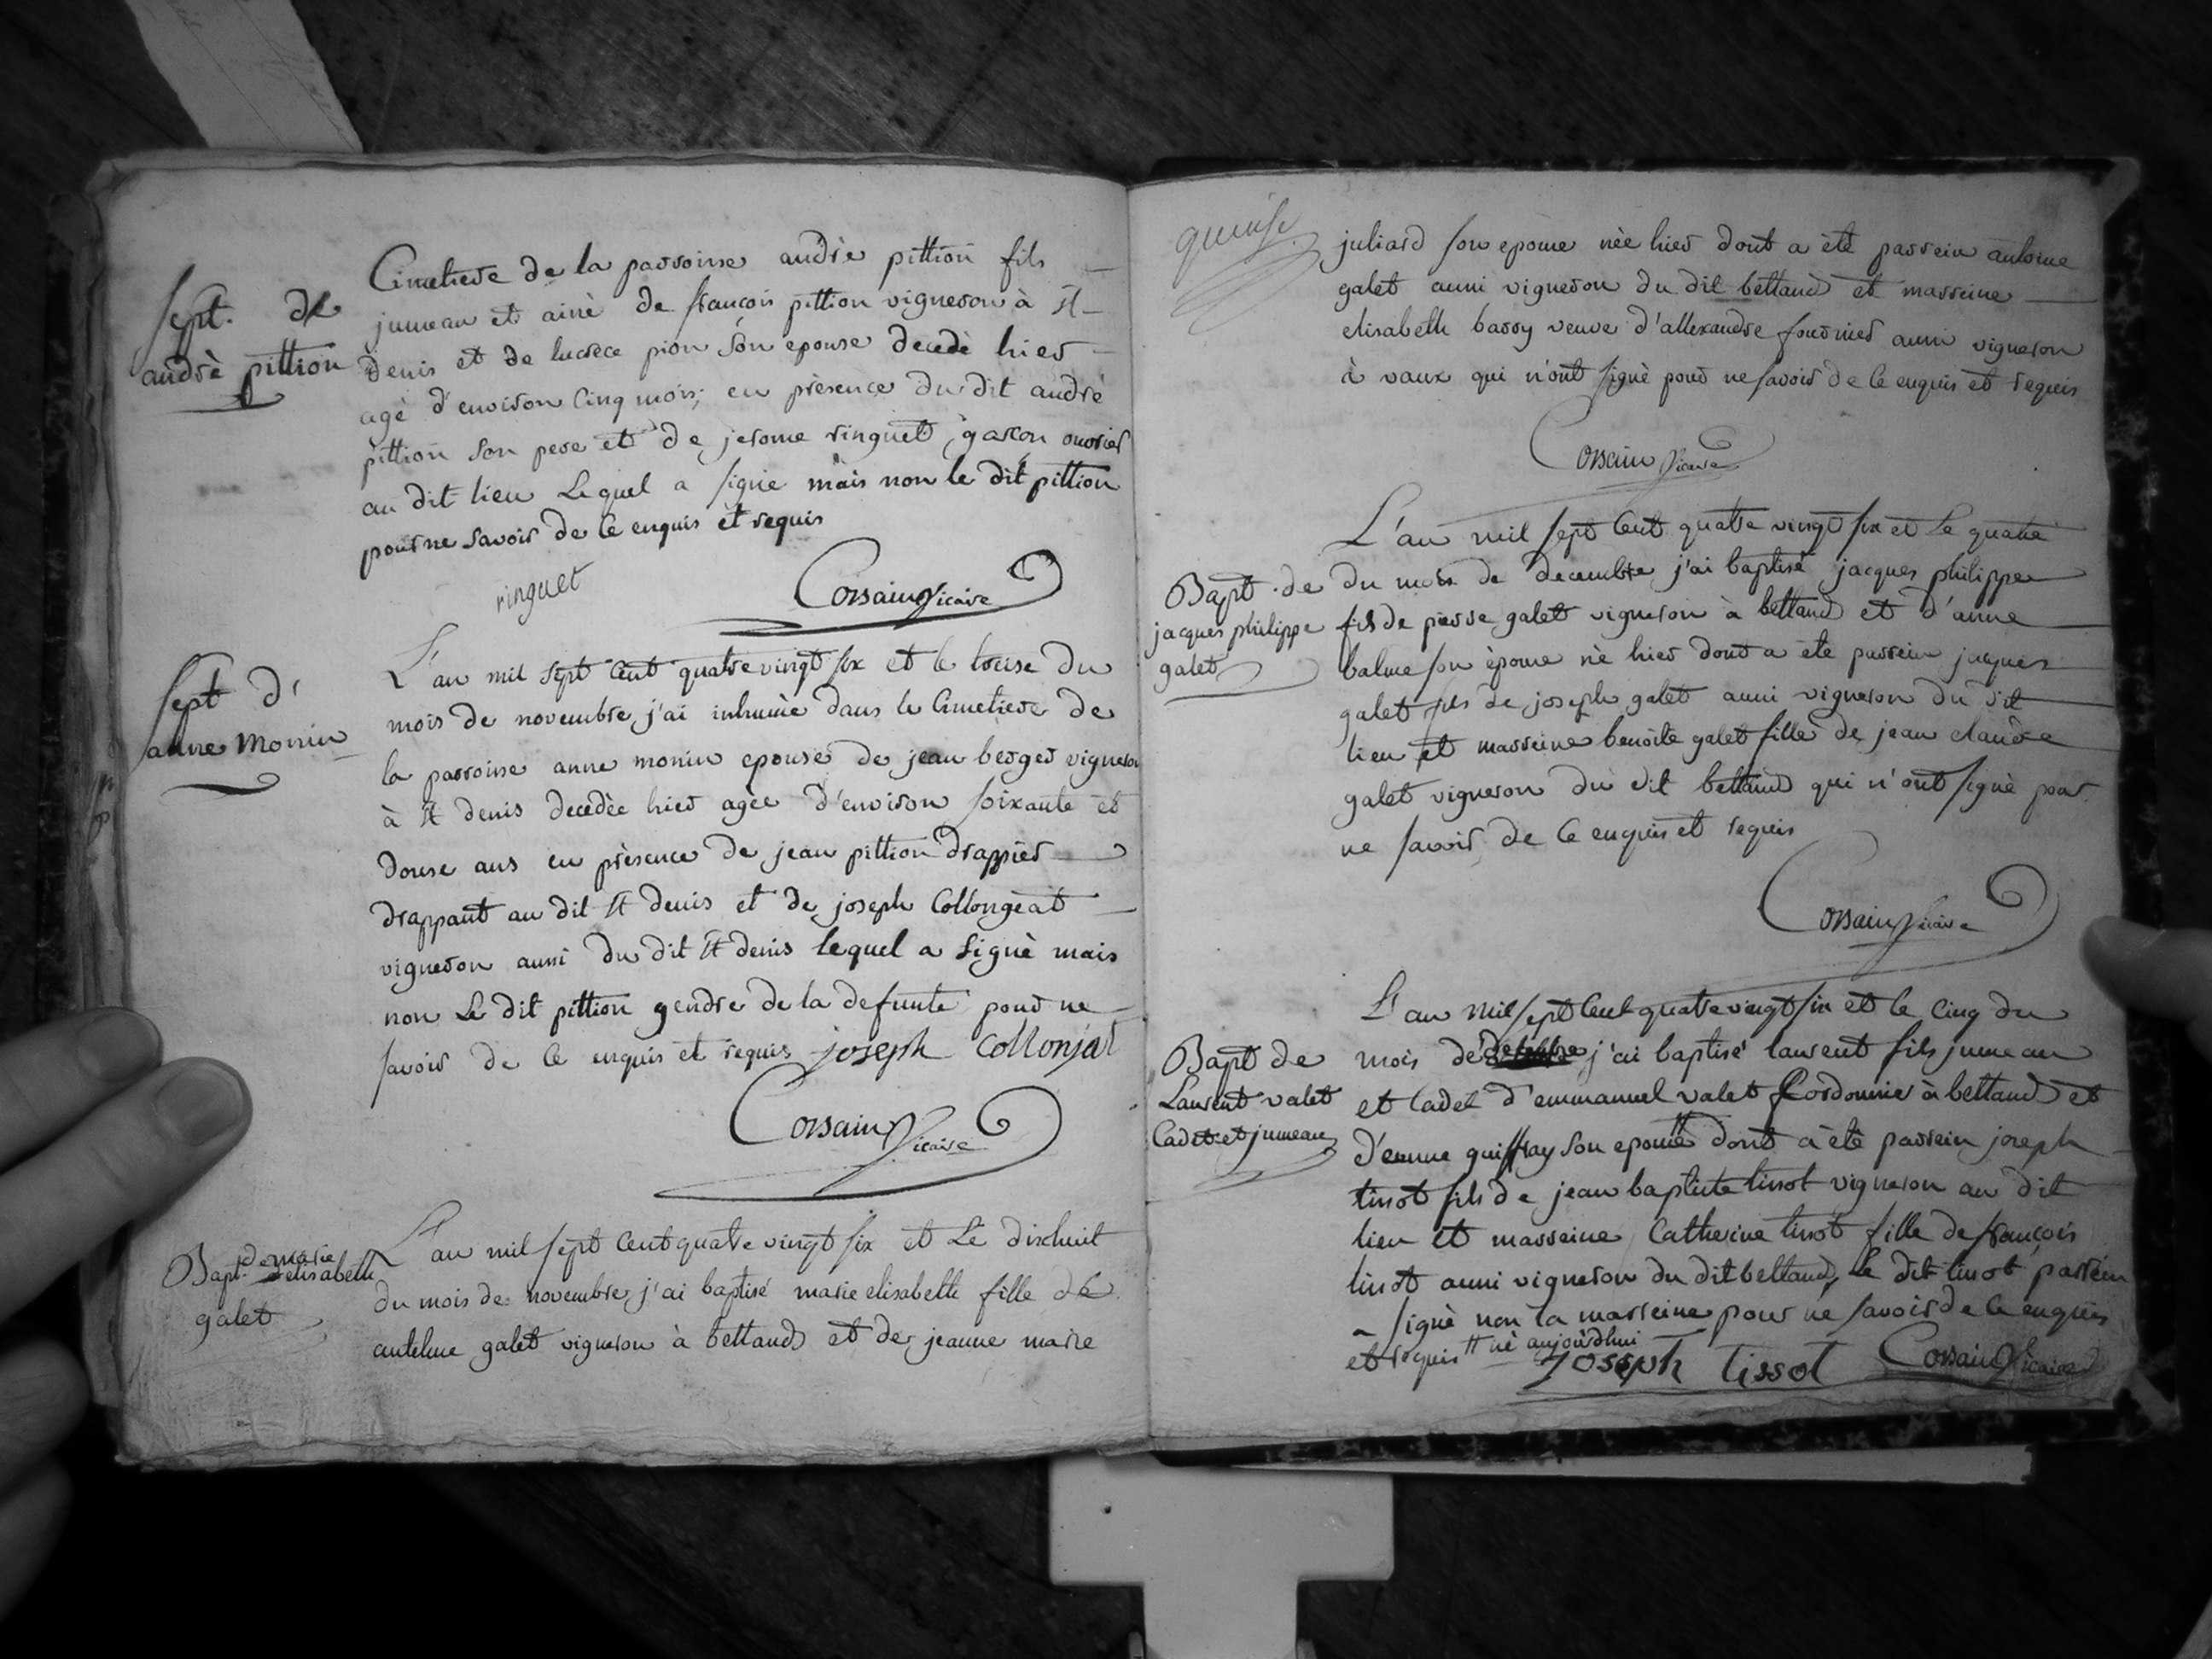 Sept. de
andrè pittion
Cimetiere de la parroisse andrè pittion fils
jumeau et ainè de françois pittion vigneron à St
denis et de lucrèce pion son epouse decedè hier
agè d'environ cinq mois; en prèsence du dit andrè
pittion son pere et de jerome ringuet, garcon ouvrier
au dit lieu Lequel a signè mais non le dit pittion
pour ne savoir de ce enquis et requis
ringuet
Corsain Vicaire
Sept d'
anne Monin
L'an mil sept cent quatre vingt six et le treise du
mois de novembre j'ai inhumè dans le Cimetiere de
la parroisse anne monin epouse de jean berger vigneron
à St denis decedèe hier agèe d'environ soixante et
douse ans en prèsence de jean pittion drappier
drappant au dit St denis et de joseph Collongeat
vigneron aussi du dit St denis lequel a signè mais
non Le dit pittion gendre de la defunte pour ne
savoir de ce enquis et requis joseph collonjat
Corsain Vicaire
Bapt. de marie
elisabeth
galet
L'an mil sept cent quatre vingt six et Le dixhuit
du mois de novembre j'ai baptisé marie elisabeth fille de
antelme galet vigneron à bettand et de jeanne marie
quinse
juliard son epouse nèe hier dont a ètè parrein antoine
galet aussi vigneron du dit bettand et marreine
elisabeth barry veuve d'allexandre fournier aussi vigneron
à vaux qui n'ont signè pour ne savoir de ce enquis et requis
Corsain Vicaire
Bapt. de
jacques philippe
galet
L'an mil sept cent quatre vingt six et Le quatre
du mois de decembre j'ai baptisé jacques philippe
fils de pierre galet vigneron à bettand et d'anne
balme son èpouse nè hier dont a ète parrein jacques
galet fils de joseph galet aussi vigneron du dit
lieu et marreine benoite galet fille de jean claude
galet vigneron du dit bettand qui n'ont signè pour
ne savoir de ce enquis et requis
Corsain Vicaire
Bapt de
Laurent valet
Cadet et jumeau
L'an mil sept cent quatre vingt six et le cinq du
mois de decembre j'ai baptisé laurent fils jumeau
et cadet d'emmanuel valet Cordonnier à bettand et
d'emme guiffray son epouse # dont a ètè parrein joseph
tissot fils de jean baptiste tissot vigneron au dit
lieu et marreine Catherine tissot fille de françois
tissot aussi vigneron du dit bettand, le dit tissot parrein
a signè non la marreine pour ne savoir de ce enquis
et requis # nè aujourd'hui
Joseph tissot Corsain Vicaire